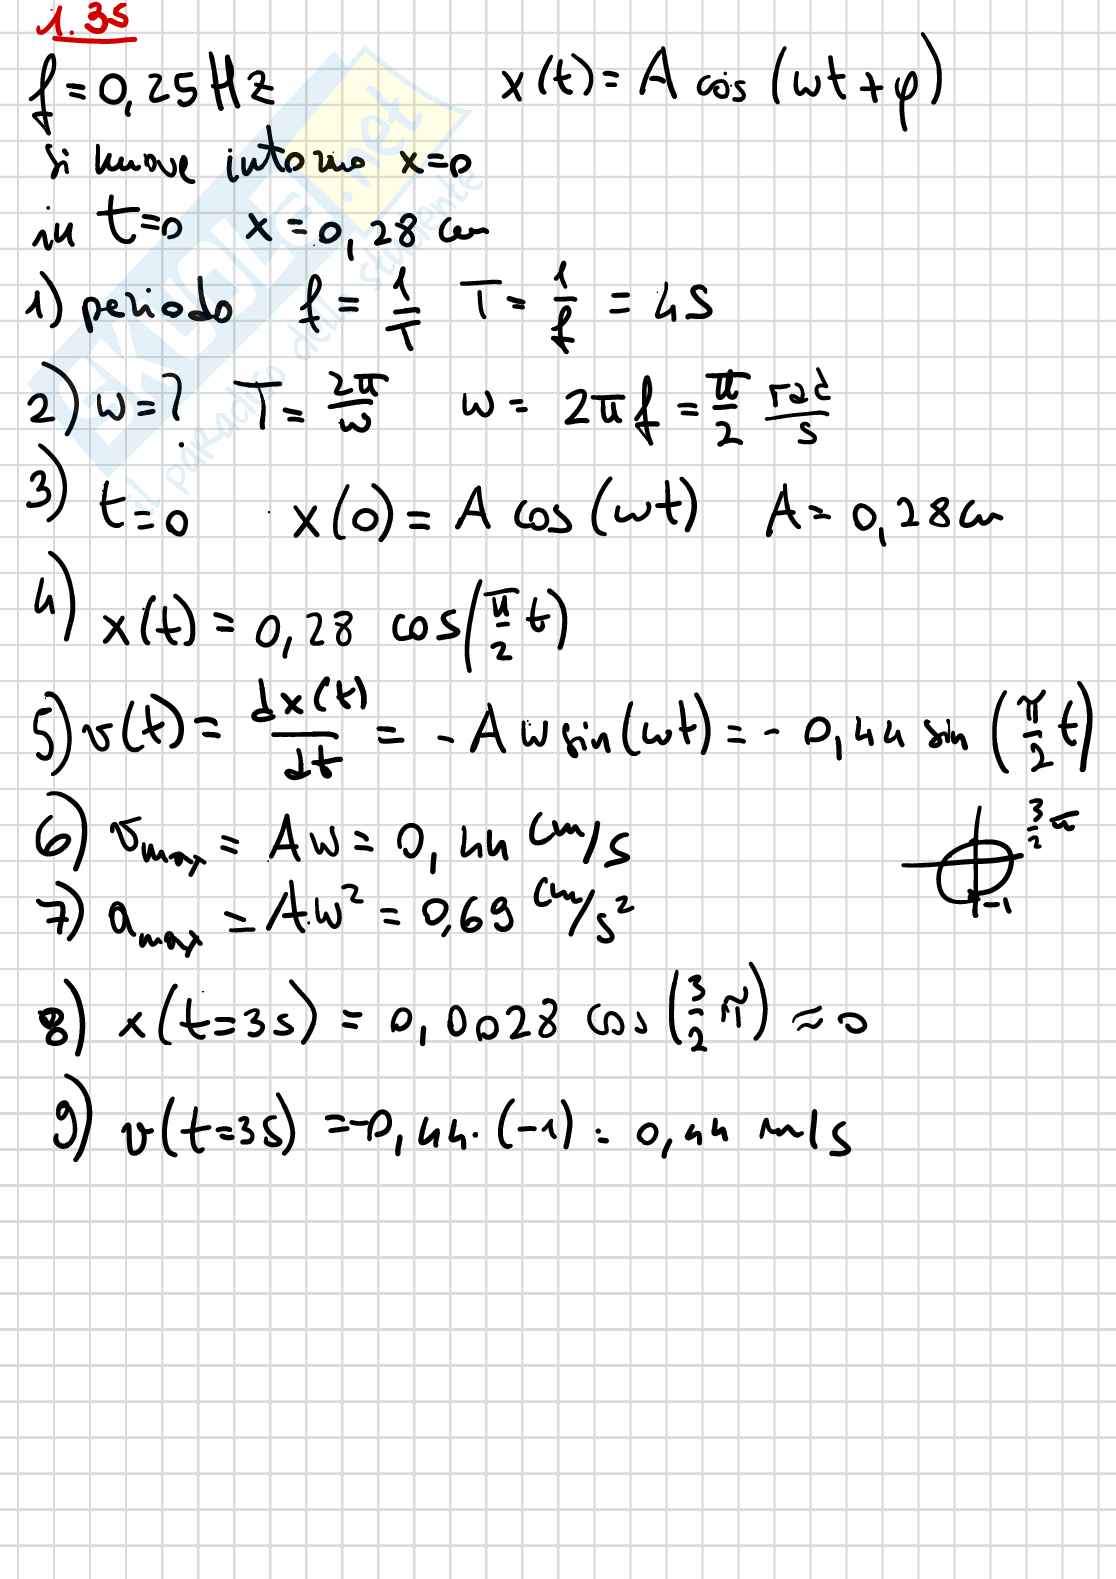 1.35
f = 0,25 Hz x(t) = A cos (ωt + φ)
si muove intorno x=0
in t=0 x = 0,28 cm
1) periodo f = 1/T T = 1/f = 4s
2) ω = ? T = 2π/ω ω = 2πf = π/2 rad/s
3) t=0 x(0) = A cos (ωt) A = 0,28 cm
4) x(t) = 0,28 cos(π/2 t)
5) v(t) = dx(t)/dt = -Aω sin(ωt) = -0,44 sin (π/2 t)
6) vmax = Aω = 0,44 cm/s
3/2 π
-1
7) amax = A·ω² = 0,69 cm/s²
8) x(t=3s) = 0,0028 cos (3/2 π) ≈ 0
9) v(t=3s) = -0,44·(-1) = 0,44 m/s
SKUOLA.net
il paradiso dello studente